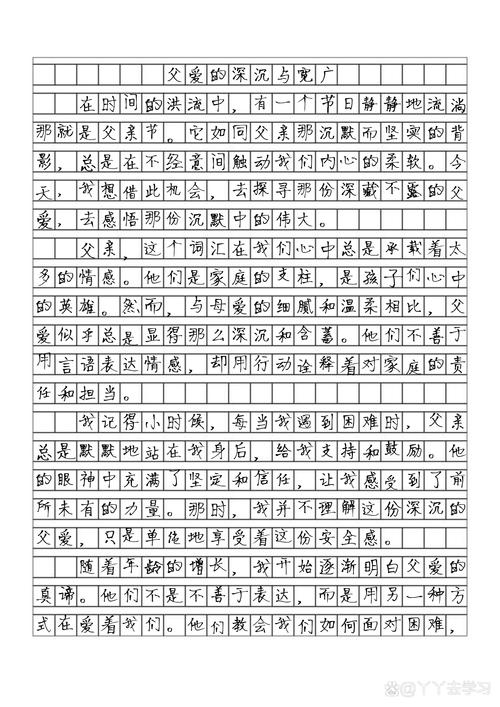 父爱的深沉与宽广
在时间的洪流中，有一个节日静静地流淌
那就是父亲节。它如同父亲那沉默而坚实的背
影，总是在不经意间触动我们内心的柔软。今
天，我想借此机会，去探寻那份深藏不露的父
爱，去感悟那份沉默中的伟大。
父亲，这个词汇在我们心中总是承载着太
多的情感。他们是家庭的支柱，是孩子们心中
的英雄。然而，与母爱的细腻和温柔相比，父
爱似乎总是显得那么深沉和含蓄。他们不善于
用言语表达情感，却用行动诠释着对家庭的责
任和担当。
我记得小时候，每当我遇到困难时，父亲
总是默默地站在我身后，给我支持和鼓励。他
的眼神中充满了坚定和信任，让我感受到了前
所未有的力量。那时，我并不理解这份深沉的
父爱，只是单纯地享受着这份安全感。
随着年龄的增长，我开始逐渐明白父爱的
真谛。他们不是不善于表达，而是用另一种方
式在爱着我们。他们教会我们如何面对困难，
@丫丫去学习